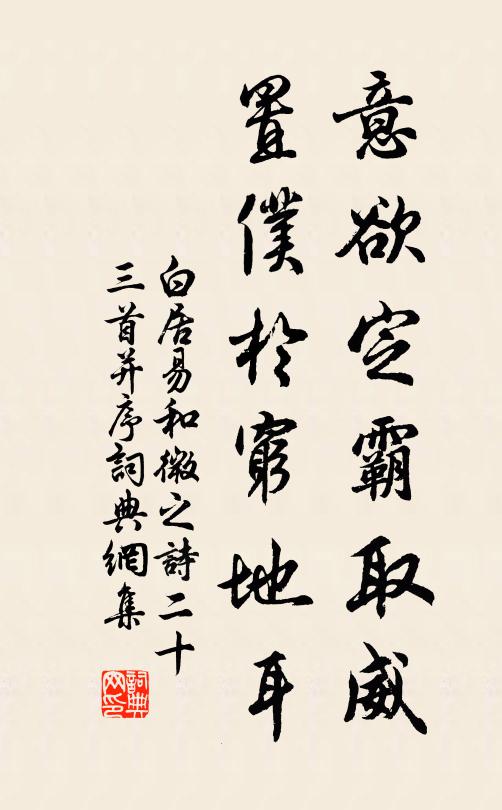 意欲定霸取威
置僕於窮地耳
白居易和微之詩二十
三首并序詞典網集
詞典
网印